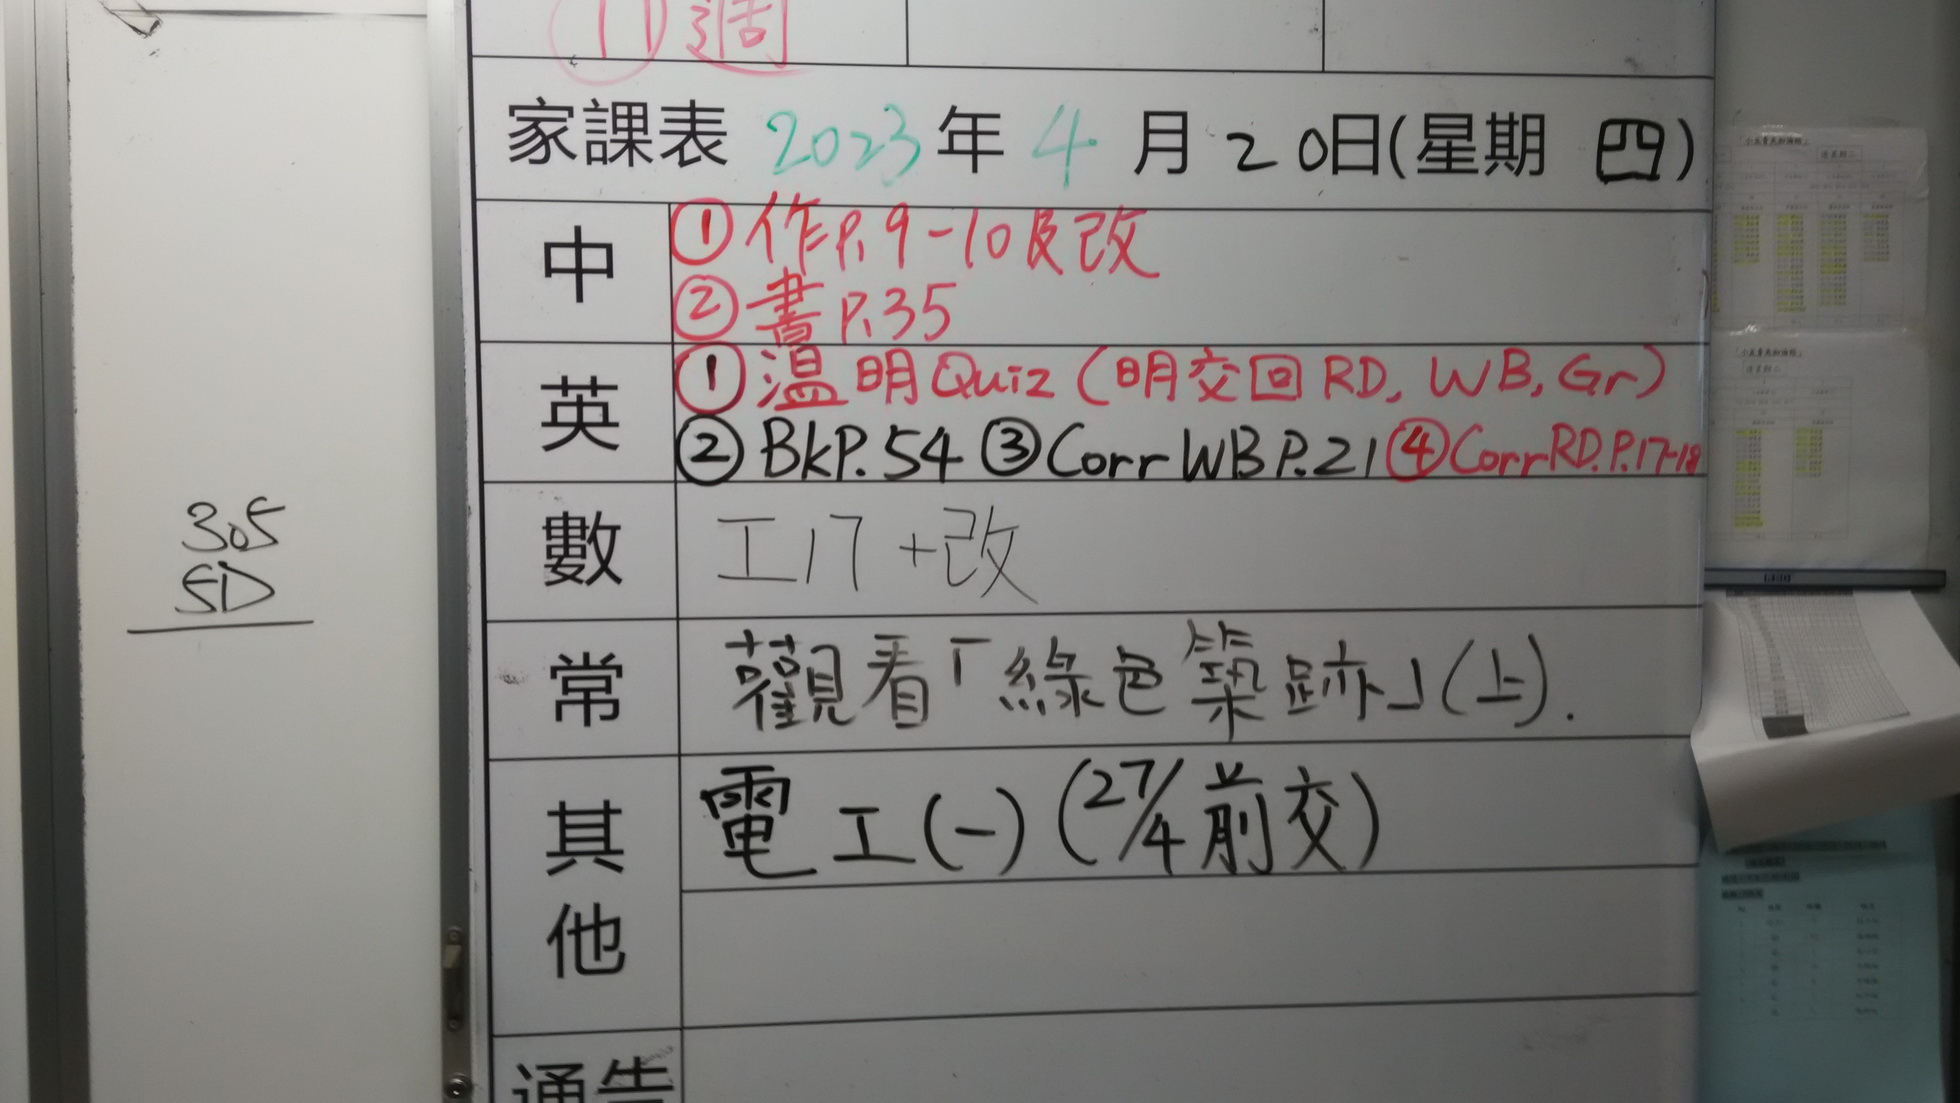 ⑪週
家課表 2023年 4 月 20日(星期 四)
中
①作P.9-10及改
②書P.35
英
①溫明Quiz (明交回RD, WB, Gr)
②BkP.54 ③Corr WB P.21 ④Corr RD.P.17-18
數
工17+改
常
觀看「綠色築跡」(上).
其他
電工(一) (27/4前交)
通告
305
5D